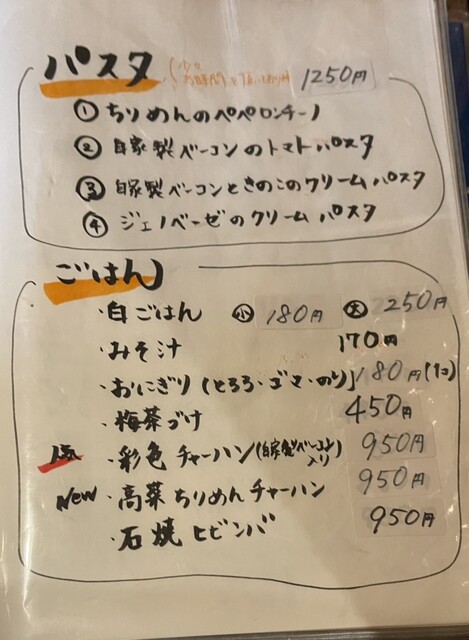 パスタ (少々お時間を頂いております 1250円
① ちりめんのペペロンチーノ
② 自家製ベーコンのトマトパスタ
③ 自家製ベーコンときのこのクリームパスタ
④ ジェノベーゼのクリームパスタ
ごはん
・白ごはん 小 180円 大 250円
・みそ汁 170円
・おにぎり (とろろ・ゴマ・のり) 180円(1コ)
・梅茶づけ 450円
人気 ・彩色チャーハン(自家製ベーコン入り) 950円
New ・高菜ちりめんチャーハン 950円
・石焼ビビンバ 950円